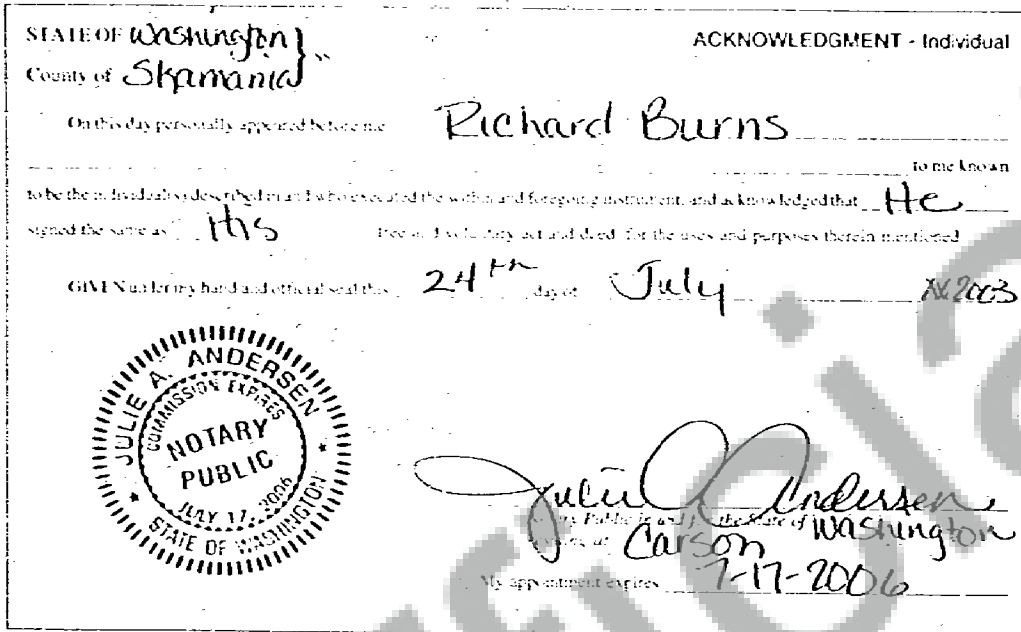 STATE OF Washington
ACKNOWLEDGMENT - Individual
County of Skamania
On this day personally appeared before me Richard Burns
to me known
to be the individual(s) described in and who executed the within and foregoing instrument, and acknowledged that He
signed the same as His free and voluntary act and deed, for the uses and purposes therein mentioned
GIVEN under my hand and official seal this 24th day of July 2003
JULIE A. ANDERSEN
COMMISSION EXPIRES
NOTARY
PUBLIC
JULY 17, 2006
STATE OF WASHINGTON
Julie A Andersen
Notary Public in and for the State of Washington
Carson
My appointment expires 7-17-2006